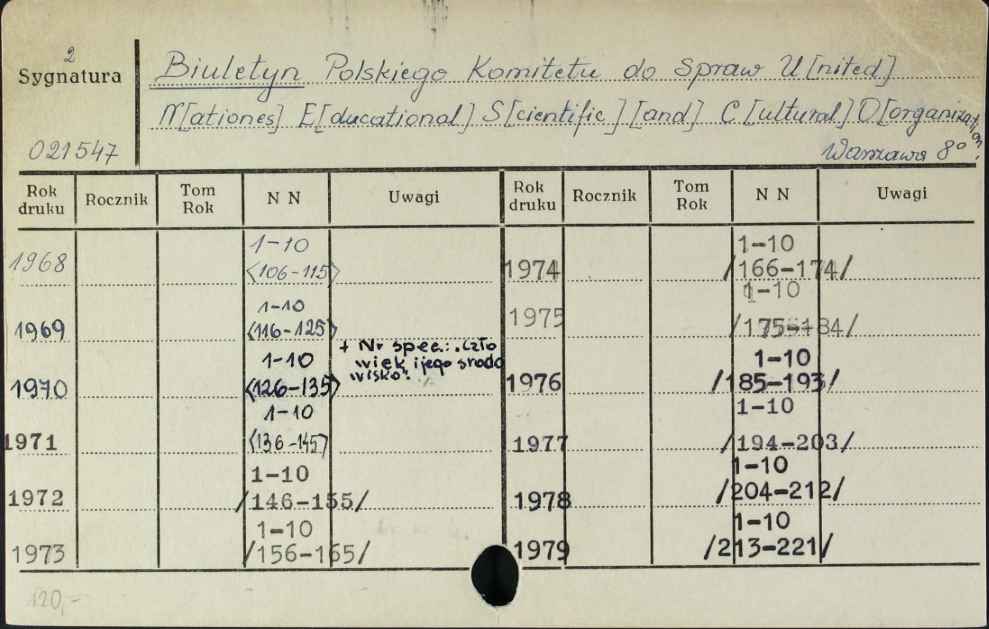 2
Sygnatura
021547
Biuletyn Polskiego Komitetu do Spraw U[nited]
N[ationes] E[ducational] S[cientific] [and] C[ultural] O[organization]
Warszawa 8°
Rok druku Rocznik Tom Rok N N Uwagi Rok druku Rocznik Tom Rok N N Uwagi
1968 1-10 <106-115>
1969 1-10 <116-125>
1970 1-10 <126-135> + Nr spec.: "Czło
wiek i jego środo
wisko".
1971 1-10 <136-145>
1972 1-10 /146-155/
1973 1-10 /156-165/
1974 1-10 /166-174/
1975 1-10 /175-184/
1976 1-10 /185-193/
1977 1-10 /194-203/
1978 1-10 /204-212/
1979 1-10 /213-221/
120,-